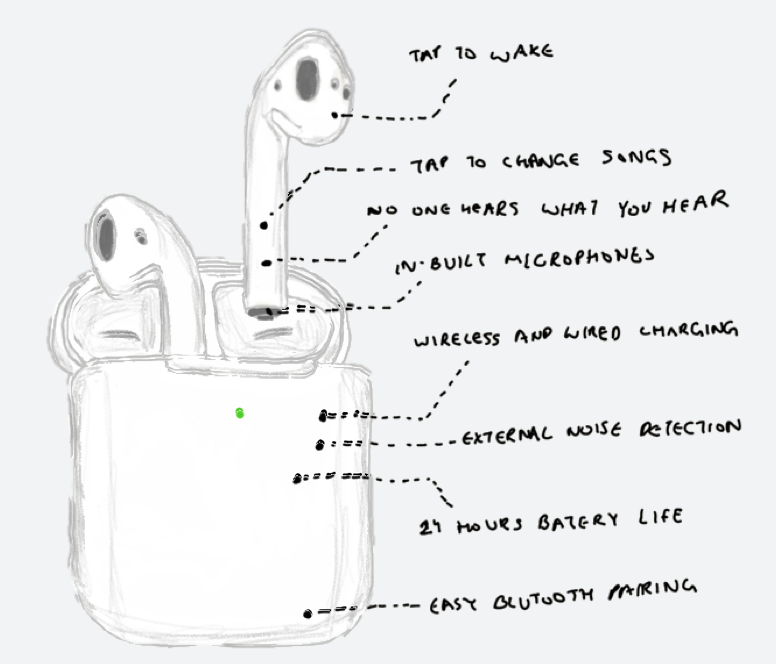 TAP TO WAKE
TAP TO CHANGE SONGS
NO ONE HEARS WHAT YOU HEAR
IN-BUILT MICROPHONES
WIRELESS AND WIRED CHARGING
EXTERNAL NOISE DETECTION
24 HOURS BATERY LIFE
EASY BLUTOOTH PAIRING